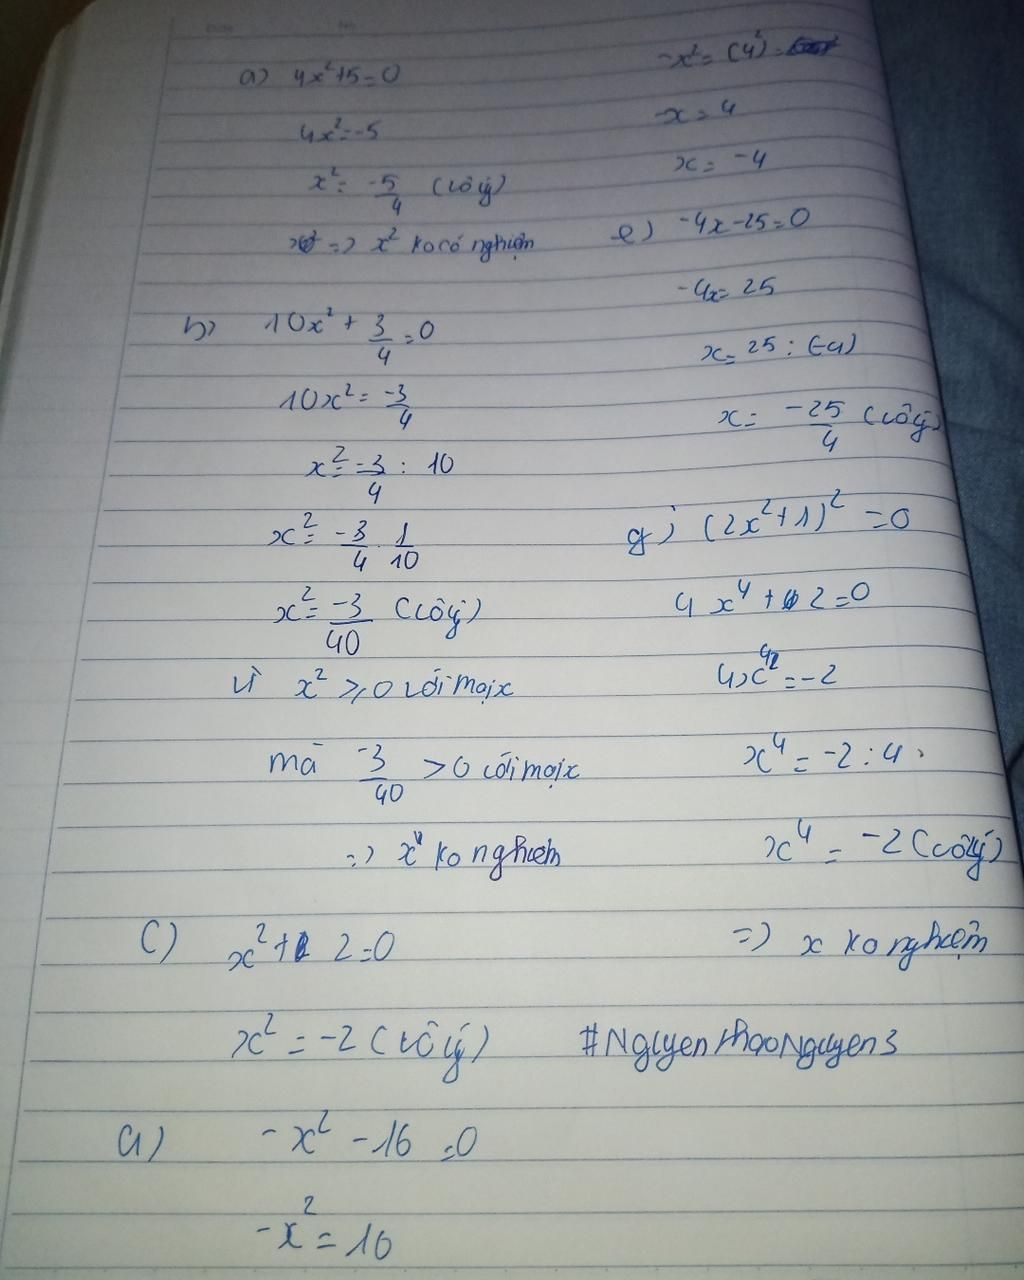 a) 4x²+5=0
4x²=-5
x²= -5/4 (vô lý)
=> x² ko có nghiệm
b) 10x² + 3/4 =0
10x² = -3/4
x² = -3/4 : 10
x² = -3/4 . 1/10
x² = -3/40 (vô lý)
vì x² ⩾ 0 với mọi x
mà -3/40 >0 với mọi x
=> x ko nghiệm
C) x²+ 2=0
x² = -2 (vô lý)
d) -x² -16 =0
-x² = 16
-x² = (4²)
-x = 4
x = -4
e) -4x-25=0
-4x= 25
x= 25 : (-4)
x= -25/4 (vô lý)
g) (2x²+1)² =0
4 x⁴ + 2 =0
4x⁴ = -2
x⁴ = -2 : 4
x⁴ = -2 (vô lý)
=> x ko nghiệm
#NguyenthaoNguyen3